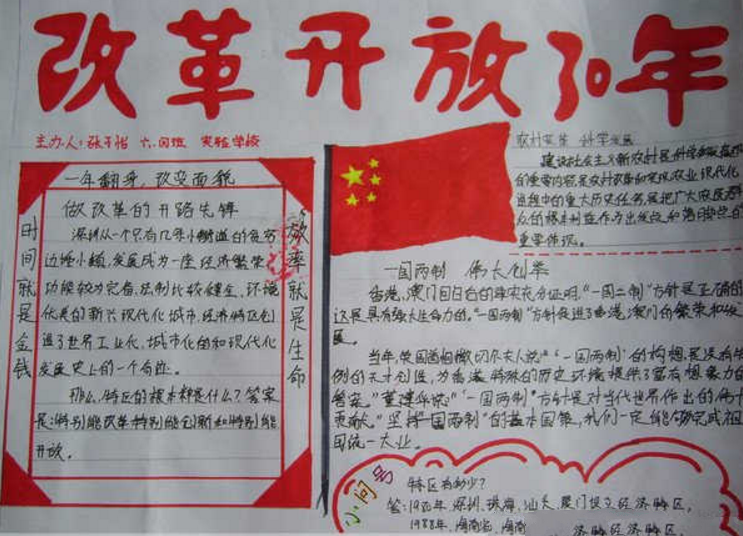 改革开放30年
主办人:张子怡 六.四班 实验学校
一年翻身,改变面貌
做改革的开路先锋
深圳从一个只有几条小街道的贫穷
边陲小镇,发展成为一座经济繁荣
功能较为完备,法制比较健全,环境
优美的新兴现代化城市,经济特区创
造了世界工业化,城市化的和现代化
发展史上的一个奇迹。
那么,特区的根本特是什么?答案
是:特别能改革特别能创新和特别能
开放。
时间就是金钱
效率就是生命
农村 科学发展
建设社会主义新农村是科学
的重要内容,是农村改革和实现农业现代化
进程中的重大历史任务,是把广大农民群
众的根本利益作为出发点和落脚点的
重要体现。
一国两制 伟大创举
香港,澳门回归的事实充分证明,“一国二制”方针是正确的
这是具有强大生命力的。“一国两制”方针促进了香港,澳门的繁荣和发
展。
当年,英国首相撒切尔夫人说:“‘一国两制’的构想,是没有先
例的天才创造,为香港特殊的历史环境提供了富有想象力的
答案。”“一国两制”方针是对当代世界作出的伟大
贡献。”坚持“一国两制”的基本国策,我们一定能够完成祖
国统一大业。
小问号
特区有多少?
答:1980年,深圳,珠海,汕头,厦门设立经济特区,
1988年,海南省,海南
济特经济特区,